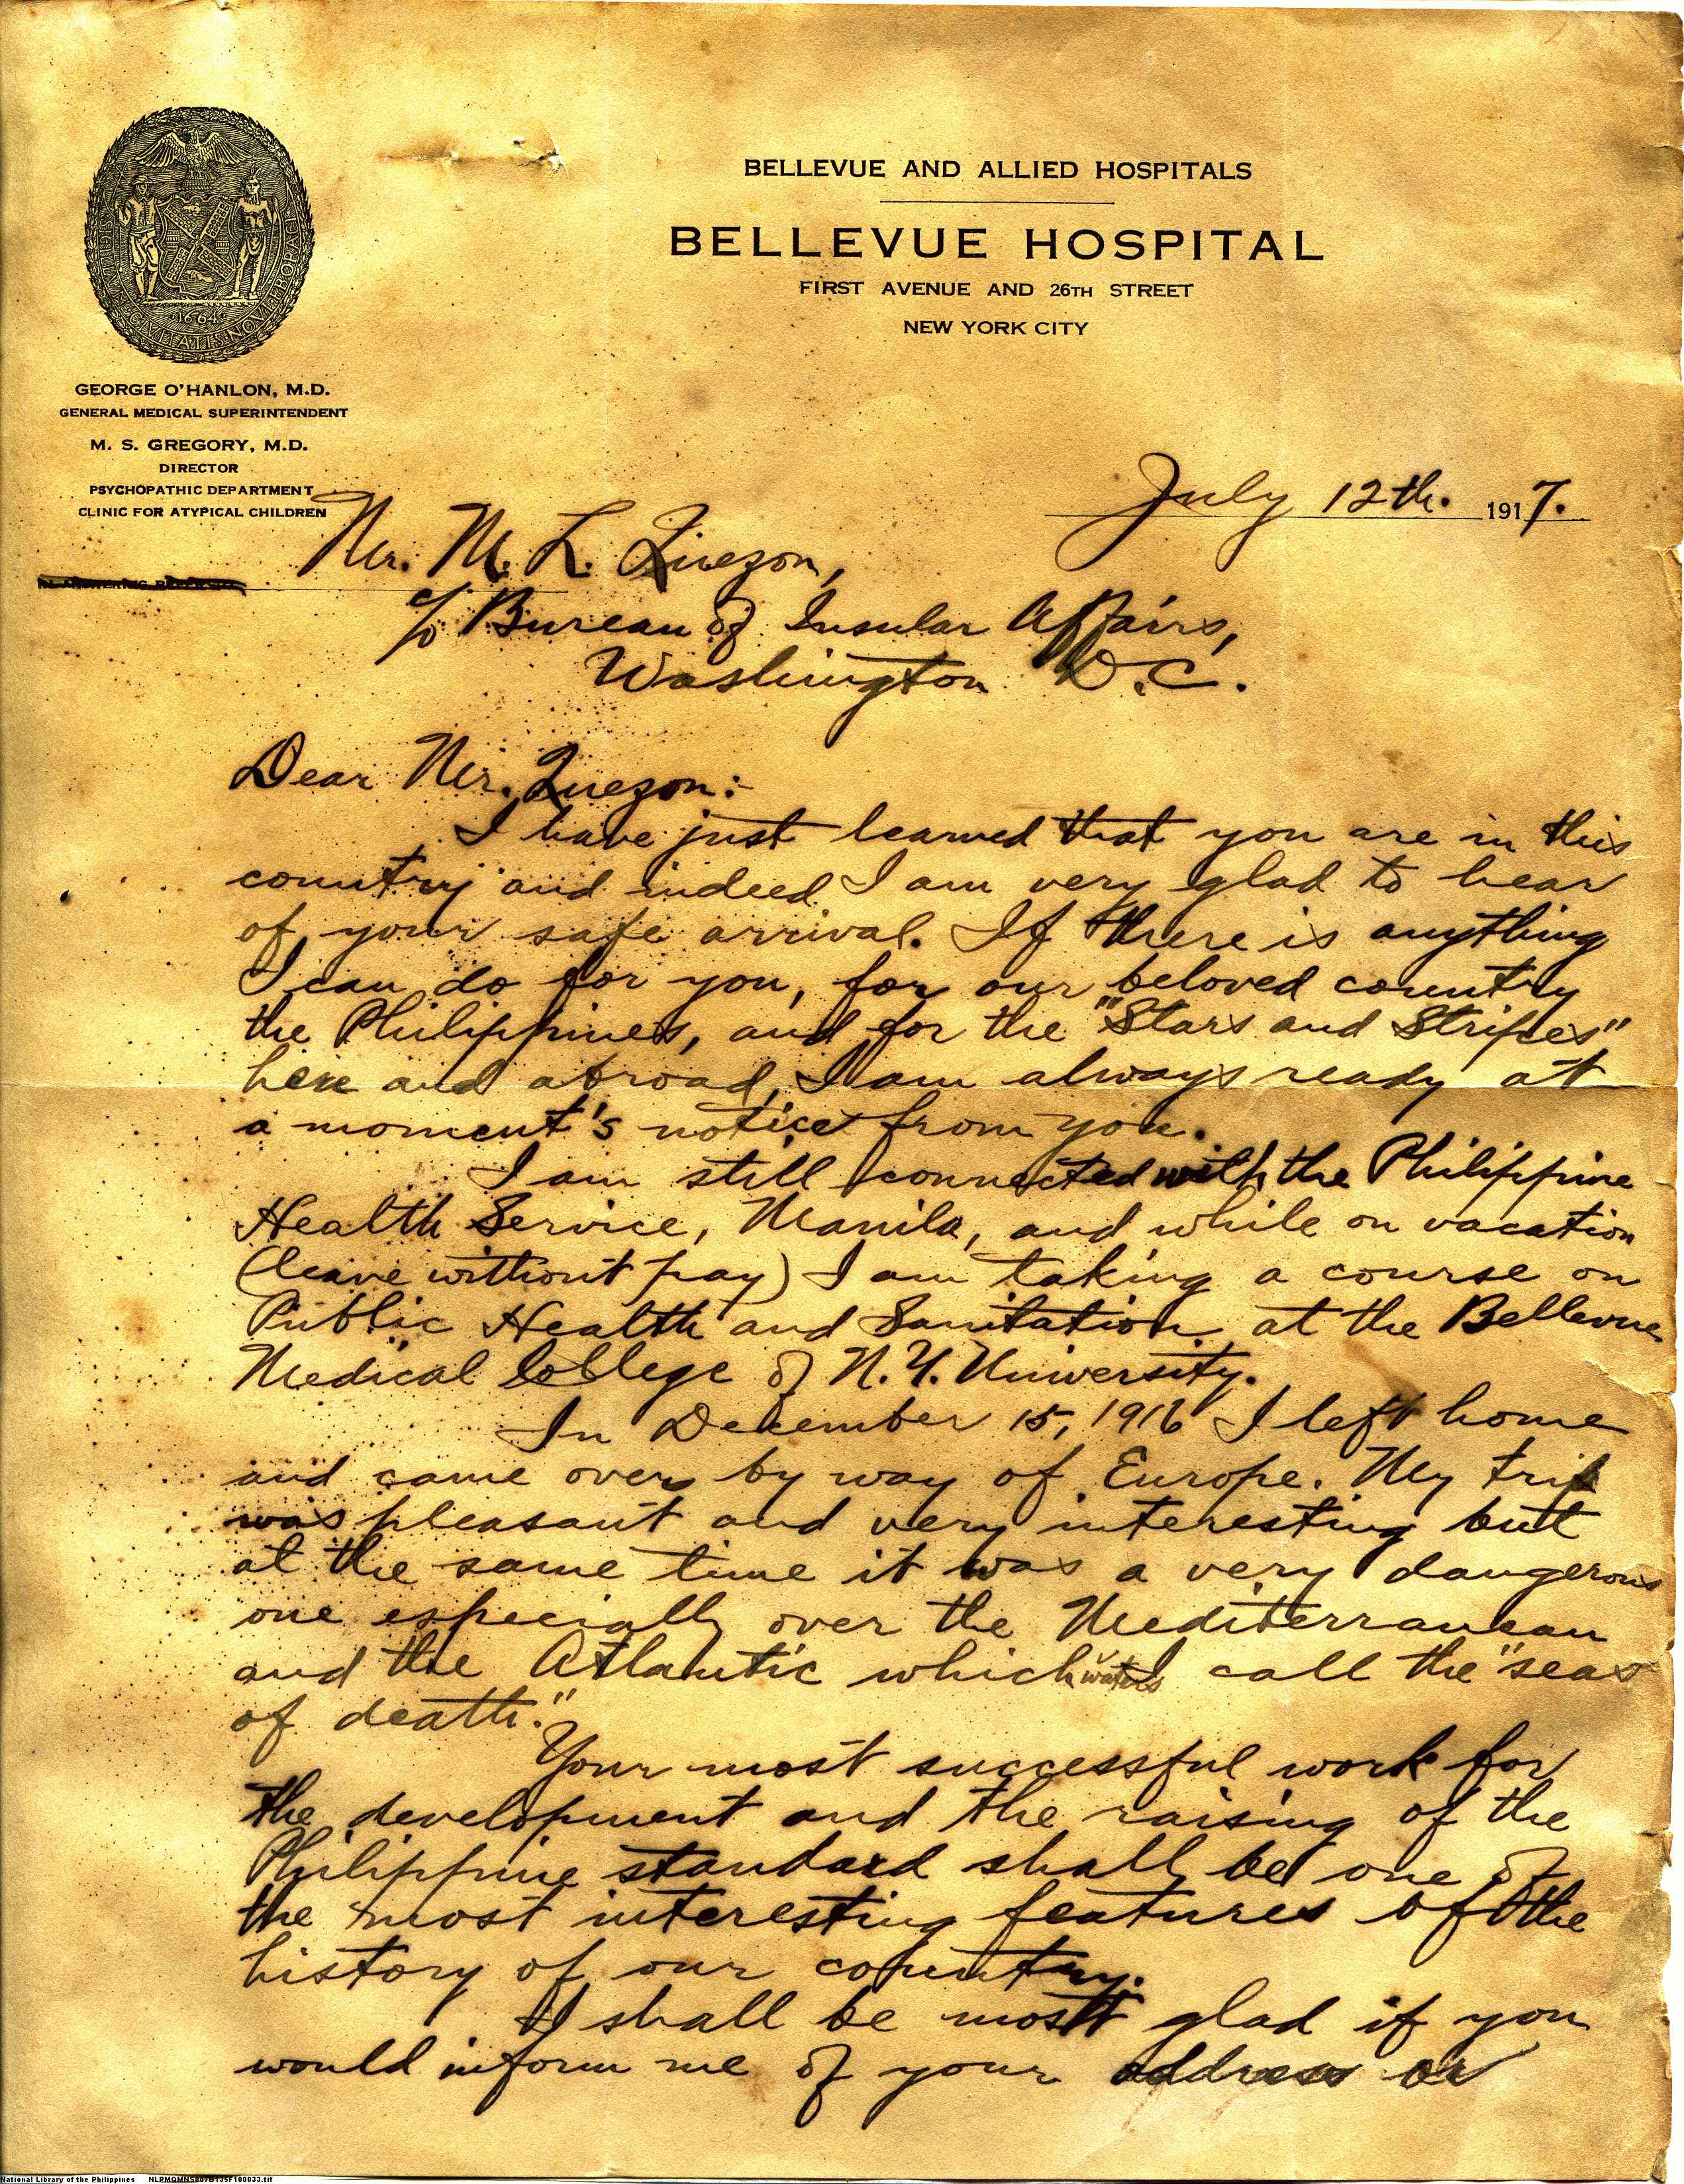 BELLEVUE AND ALLIED HOSPITALS
BELLEVUE HOSPITAL
FIRST AVENUE AND 26TH STREET
NEW YORK CITY
SIGILLUM CIVITATIS NOVI EBORACI
1664
GEORGE O'HANLON, M.D.
GENERAL MEDICAL SUPERINTENDENT
M. S. GREGORY, M.D.
DIRECTOR
PSYCHOPATHIC DEPARTMENT
CLINIC FOR ATYPICAL CHILDREN
July 12th. 1917.
Mr. M. L. Quezon,
c/o Bureau of Insular Affairs,
Washington D.C.
Dear Mr. Quezon:-
I have just learned that you are in this
country and indeed I am very glad to hear
of your safe arrival. If there is anything
I can do for you, for our beloved country
the Philippines, and for the "Stars and Stripes"
here and abroad, I am always ready at
a moment's notice from you.
I am still connected with the Philippine
Health Service, Manila, and while on vacation
(leave without pay) I am taking a course on
Public Health and Sanitation at the Bellevue
Medical College of N.Y. University.
In December 15, 1916 I left home
and came over by way of Europe. My trip
was pleasant and very interesting but
at the same time it was a very dangerous
one especially over the Mediterranean
and the Atlantic which waters I call the "seas
of death."
Your most successful work for
the development and the raising of the
Philippine standard shall be one of
the most interesting features of the
history of our country.
I shall be most glad if you
would inform me of your address or
National Library of the Philippines